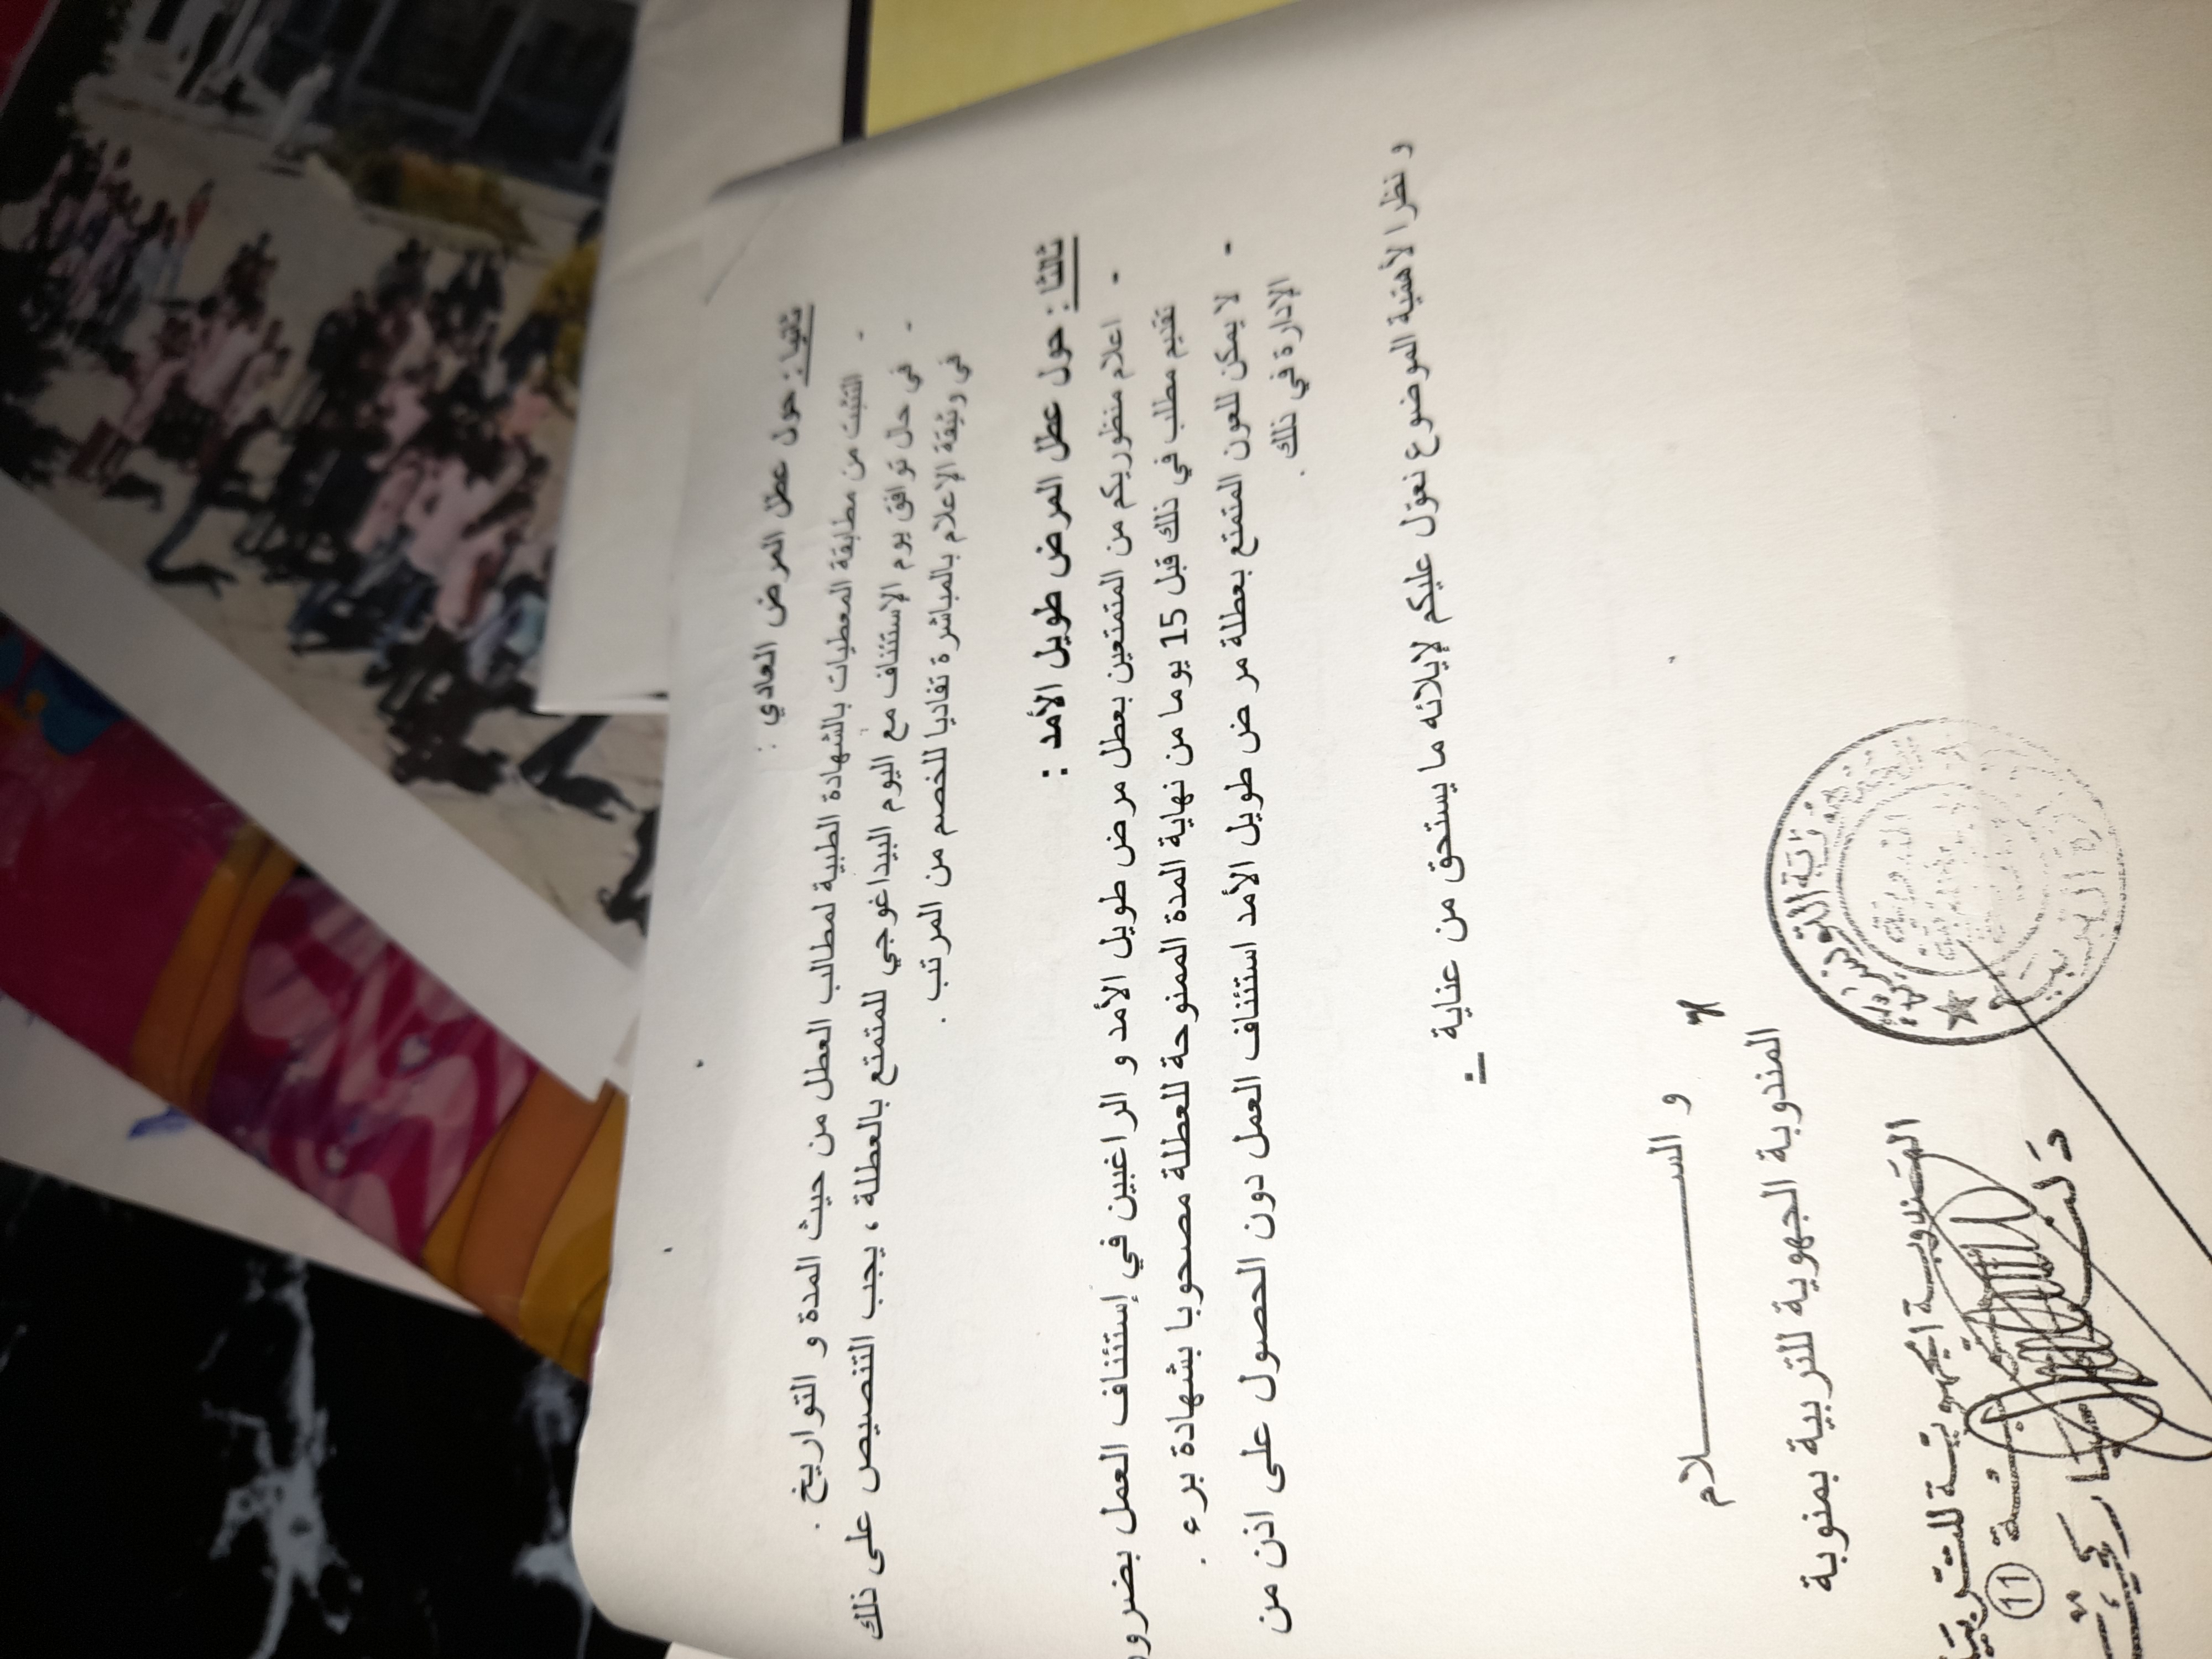 ثانيا : حول عطل المرض العادي :
- التثبت من مطابقة المعطيات بالشهادة الطبية لمطالب العطل من حيث المدة و التواريخ .
- في حال توافق يوم الاستئناف مع اليوم البيداغوجي للمتمتع بالعطلة ، يجب التنصيص على ذلك
في وثيقة الإعلام بالمباشرة تفاديا للخصم من المرتب .
ثالثا : حول عطل المرض طويل الأمد :
- اعلام منظوريكم من المتمتعين بعطل مرض طويل الأمد و الراغبين في إستئناف العمل بضرو
تقديم مطلب في ذلك قبل 15 يوما من نهاية المدة الممنوحة للعطلة مصحوبا بشهادة برء .
- لا يمكن للعون المتمتع بعطلة مرض طويل الأمد استئناف العمل دون الحصول على اذن من
الإدارة في ذلك .
و نظرا لأهمية الموضوع نعول عليكم لإيلائه ما يستحق من عناية .
و الســـــلام
المندوبة الجهوية للتربية بمنوبة
المندوبة الجهوية للتربية
11